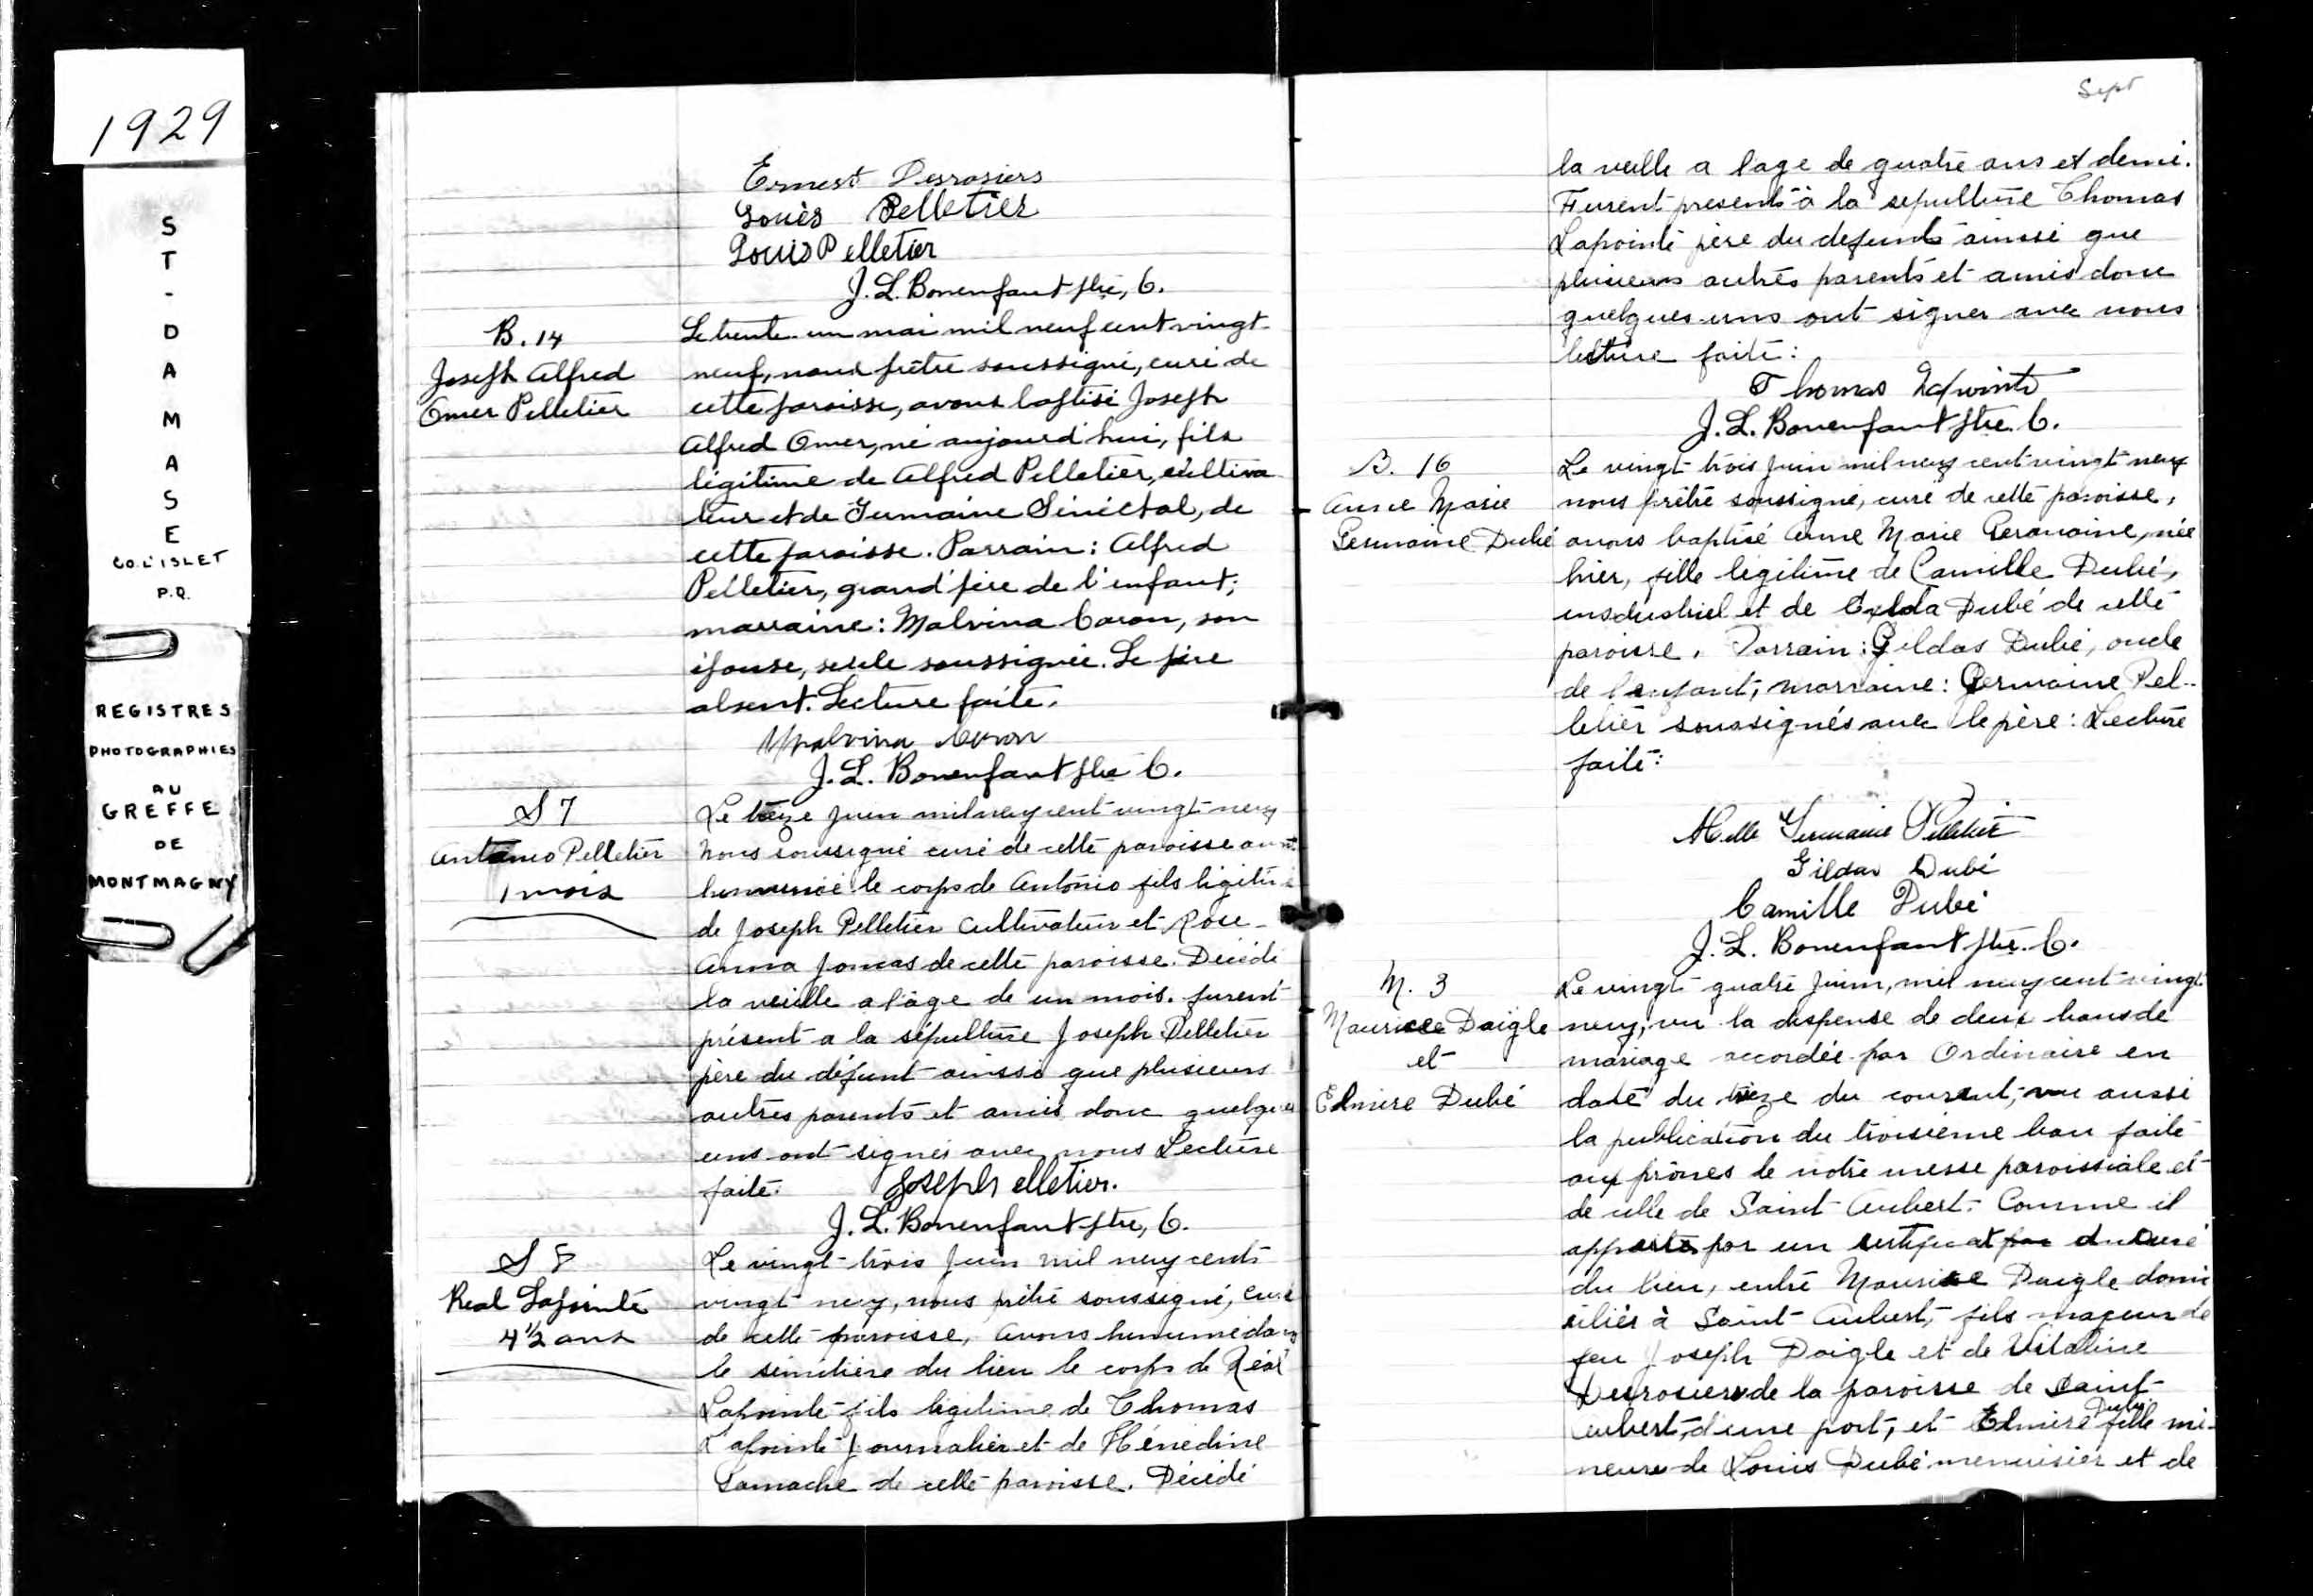 1929
S
T
-
D
A
M
A
S
E
CO. L'ISLET
P.Q.
REGISTRES
PHOTOGRAPHIES
AU
GREFFE
DE
MONTMAGNY
Ernest Desrosiers
Louis Pelletier
Louis Pelletier
J. L. Bonenfant ptre, C.
B. 14
Joseph Alfred
Omer Pelletier
Le trente-un mai mil neuf cent vingt-
neuf, nous prêtre soussigné, curé de
cette paroisse, avons baptisé Joseph
Alfred Omer, né aujourd'hui, fils
légitime de Alfred Pelletier, cultiva
teur et de Germaine Sénéctal, de
cette paroisse. Parrain: Alfred
Pelletier, grand'père de l'enfant;
marraine: Malvina Caron, son
épouse, seule soussignée. Le père
absent. Lecture faite.
Malvina Caron
J. L. Bonenfant ptre C.
S 7
Antonio Pelletier
1 mois
Le treize juin mil neuf cent vingt-neuf
nous soussigné curé de cette paroisse
le corps de Antonio fils légitime
de Joseph Pelletier cultivateur et Rose-
Anna Joncas de cette paroisse. Décédé
la veille a l'âge de un mois. furent
présent a la sépulture Joseph Pelletier
père du défunt ainssi que plusieurs
autres parents et amis donc quelques
uns ont signés avec nous Lecture
faite. Joseph Pelletier.
J. L. Bonenfant ptre, C.
S 8
Real Lapointe
4 1/2 ans
Le vingt-trois juin mil neuf cents
vingt neuf, nous prêtre soussigné, curé
de cette paroisse, avons hinumé dans
le simitière du lieu le corps de Réal
Lapointe fils légitime de Thomas
Lapointe journalier et de Hénédine
Gamache de cette paroisse. Décédé
Sept
la veille a lage de quatre ans et demi.
Furent presents à la sepulture Thomas
Lapointe père du defunt ainssi que
plusieurs autres parents et amis donc
quelques-uns ont signer avec nous
lecture faite:
Thomas Lapointe
J. L. Bonenfant ptre. C.
B. 16
Anne Marie
Germaine Dubé
Le vingt-trois juin mil neuf cent vingt neuf
nous prêtre soussigné, curé de cette paroisse,
avons baptisé Anne Marie Germaine, née
hier, fille légitime de Camille Dubé,
insdustriel et de Dubé de cette
paroisse. Parrain: Gildas Dubé, oncle
de l'enfant; marraine: Germaine Pel-
letier soussignés avec le père: Lecture
faite:
Melle Germaine Pelletier
Gildas Dubé
Camille Dubé
J. L. Bonenfant ptre. C.
M. 3
Maurice Daigle
et
Elmire Dubé
Le vingt-quatre juin, mil neuf cent-vingt
neuf, vu la dispense de deux bans de
mariage accordée par Ordinaire en
date du treize du courant, vu aussi
la publication du troisième ban faite
aux prônes de notre messe paroissiale et
de celle de Saint-Aubert. Comme il
par un certificat par du Curé
du lieu, entre Maurice Daigle domi
ciliés à Saint-Aubert, fils majeur de
feu Joseph Daigle et de Vitaline
Desrosiers de la paroisse de Saint-
Aubert, d'une part, et Elmire Dubé fille mi-
neure de Louis Dubé menuisier et de